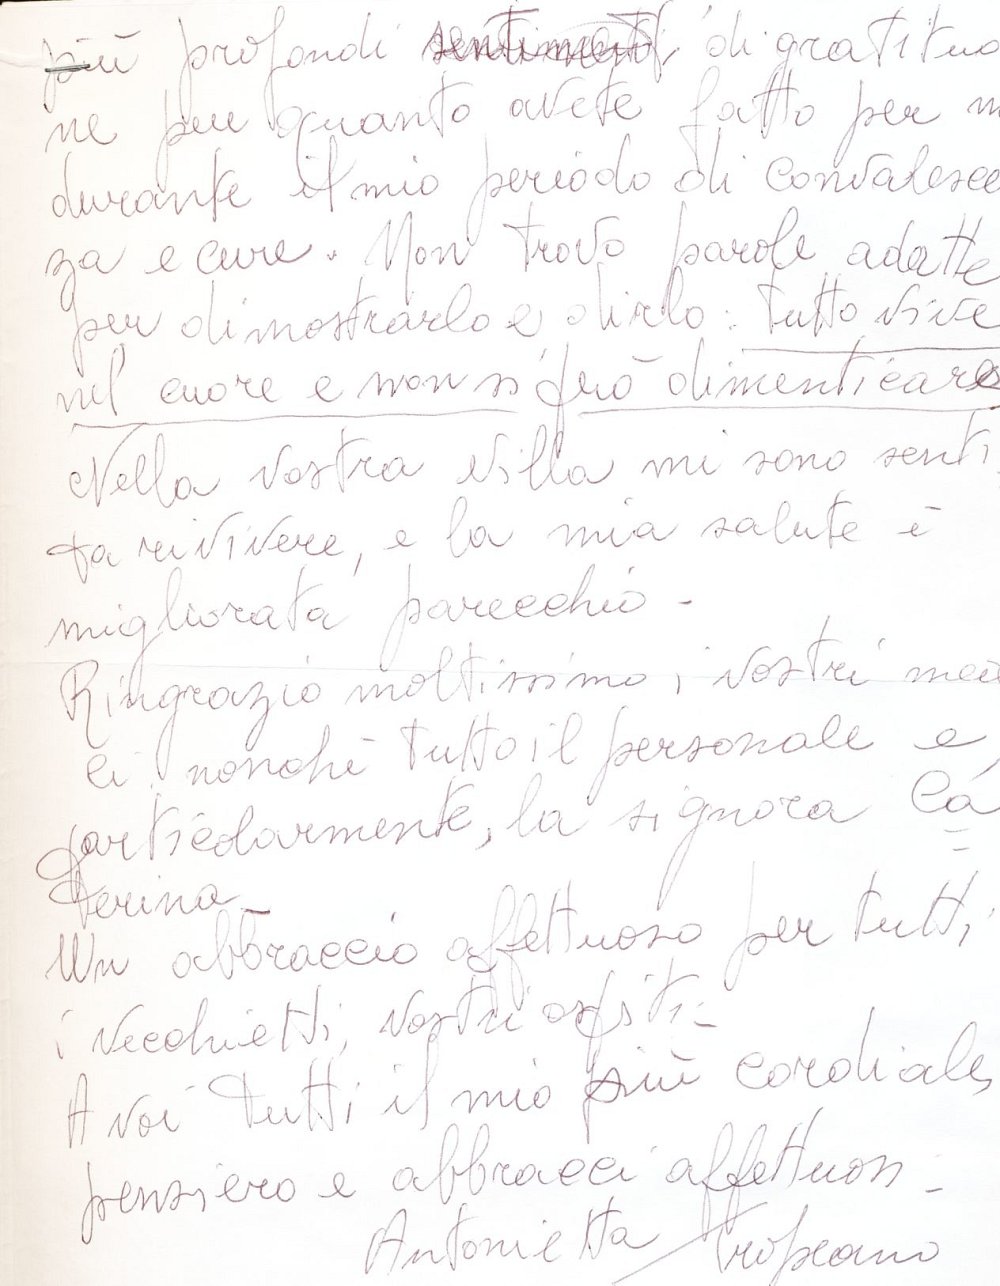 più profondi sentimenti di gratitudi
ne per quanto avete fatto per m
durante il mio periodo di convalesce
za e cure. Non trovo parole adatte
per dimostrarlo e dirlo: tutto vive
nel cuore e non si può dimenticare
Nella vostra villa mi sono senti
ta rivivere, e la mia salute è
migliorata parecchio -
Ringrazio moltissimo i vostri medi
ci nonchè tutto il personale e
particolarmente, la signora Ca
terina
Un abbraccio affettuoso per tutti
i vecchietti, vostri ospiti -
A voi tutti il mio più cordiale,
pensiero e abbracci affettuosi -
Antonietta Tropeano